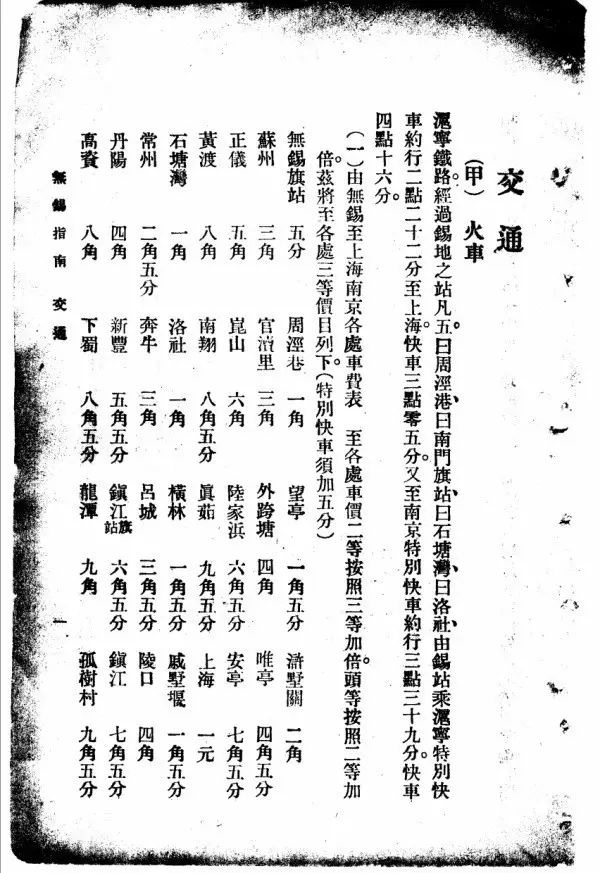 交通
(甲) 火車
滬寧鐵路。經過錫地之站凡五。曰周涇港、曰南門旗站、曰石塘灣、曰洛社、由錫站乘滬寧特別快
車約行二點二十二分至上海。快車三點零五分。又至南京特別快車約行三點三十九分。快車
四點十六分。
(一)由無錫至上海南京各處車費表 至各處車價二等按照三等加倍。頭等按照二等加
倍。茲將至各處三等價目列下。(特別快車須加五分)
無錫旗站 五分 周涇巷 一角 望亭 一角五分 滸墅關 二角
蘇州 三角 官瀆里 三角 外跨塘 四角 唯亭 四角五分
正儀 五角 崑山 六角 陸家浜 六角五分 安亭 七角五分
黃渡 八角 南翔 八角五分 眞茹 九角五分 上海 一元
石塘灣 一角 洛社 一角 橫林 一角五分 戚墅堰 一角五分
常州 二角五分 奔牛 三角 呂城 三角五分 陵口 四角
丹陽 四角 新豐 五角五分 鎭江旗站 六角五分 鎭江 七角五分
高資 八角 下蜀 八角五分 龍潭 九角 孤樹村 九角五分
無錫指南 交通 一